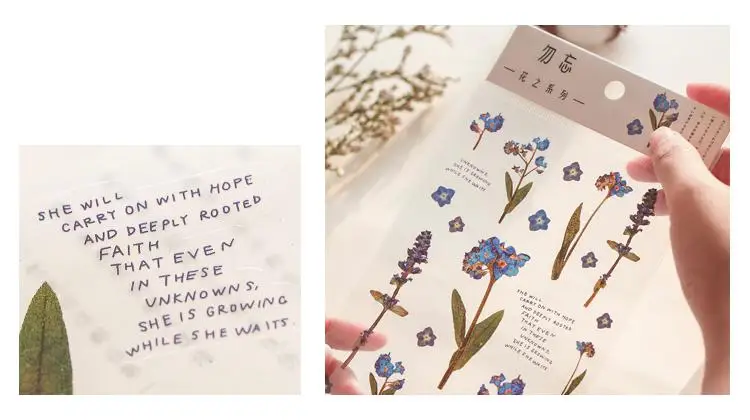 SHE WILL
CARRY ON WITH HOPE
AND DEEPLY ROOTED
FAITH
THAT EVEN
IN THESE
UNKNOWNS,
SHE IS GROWING
WHILE SHE WAITS.
勿忘
花之系列
UNKNOWNS,
SHE IS GROWING
WHILE SHE WAITS
SHE WILL
CARRY ON WITH HOPE
AND DEEPLY ROOTED
FAITH
THAT EVEN
IN THESE
UNKNOWNS,
SHE IS GROWING
WHILE SHE WAITS.